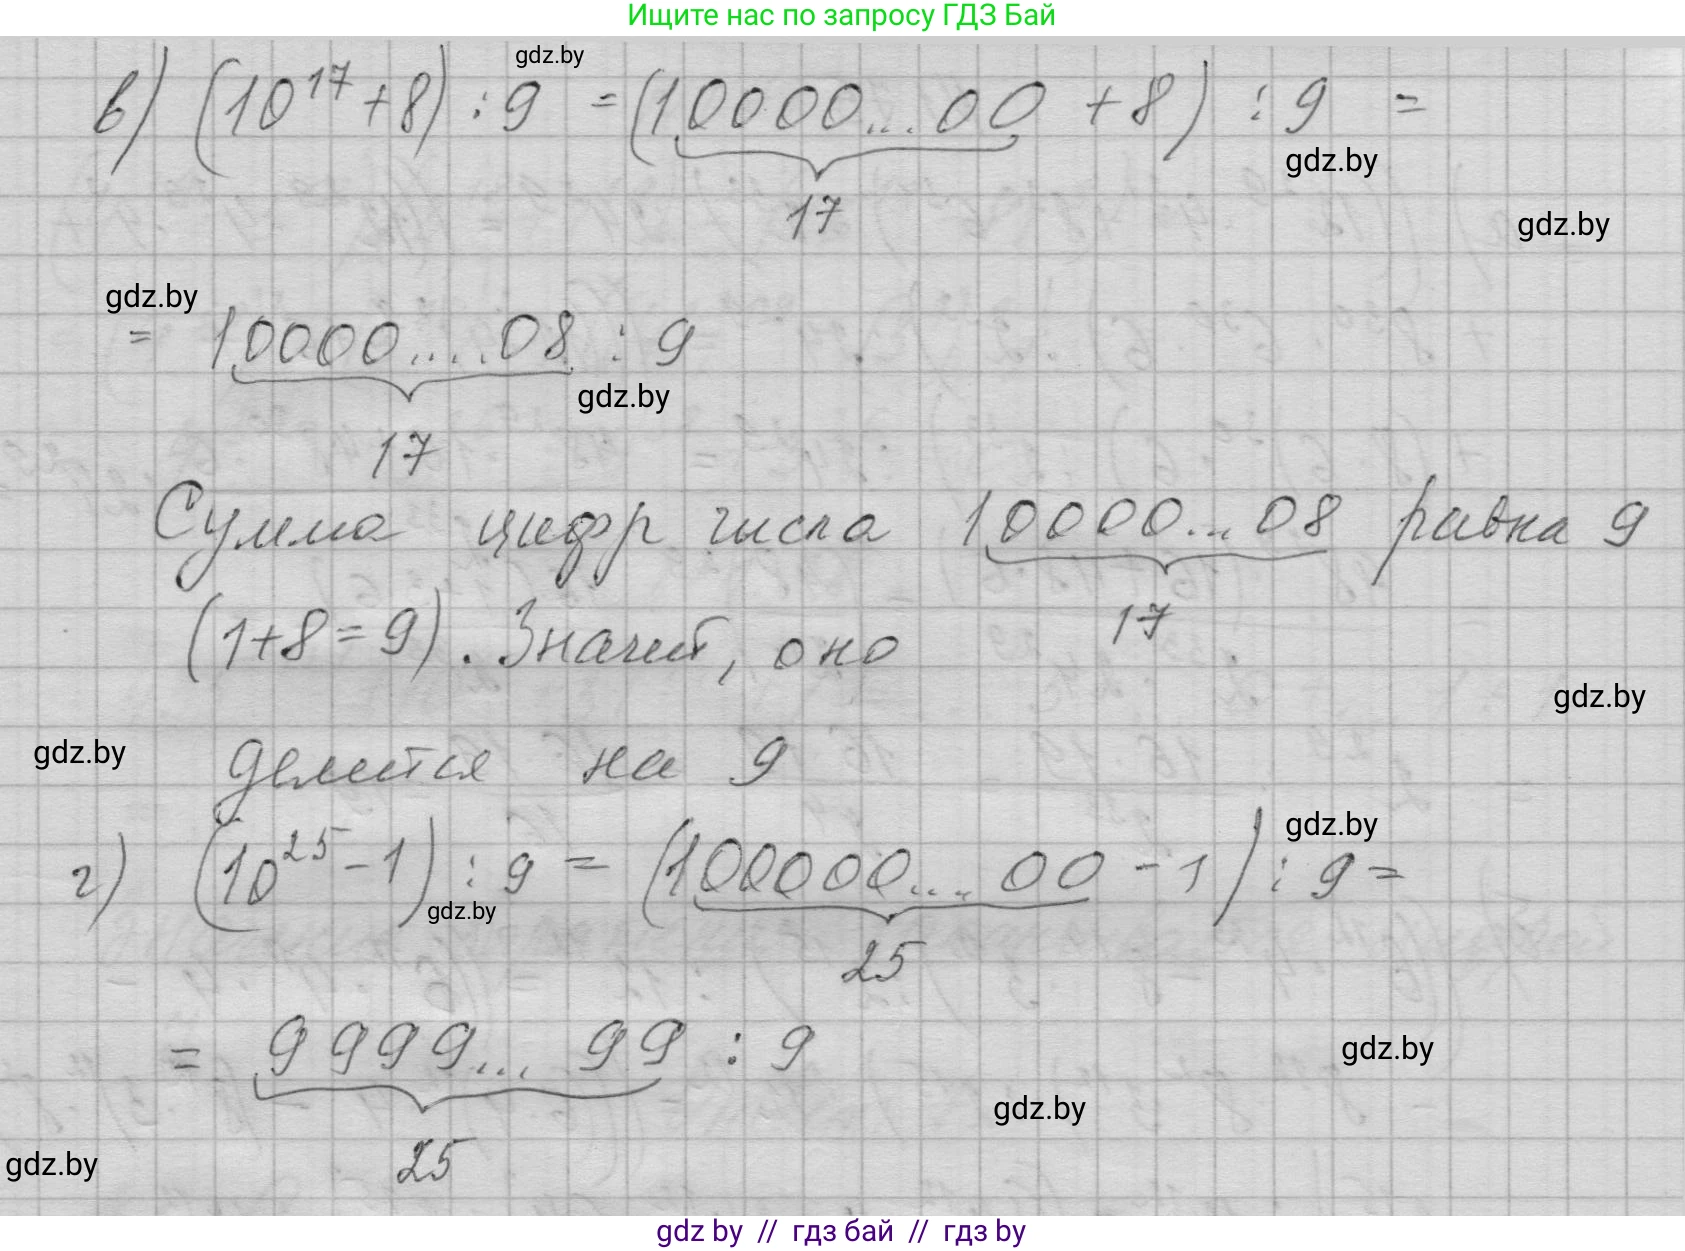 Ищите нас по запросу ГДЗ Бай
gdz.by
в) (10^17 + 8) : 9 = (10000...00 + 8) : 9 =
gdz.by
17
gdz.by
gdz.by
= 10000....08 : 9
gdz.by
17
Сумма цифр числа 10000...08 равна 9
17
(1+8=9). Значит, оно
gdz.by
gdz.by
делится на 9
gdz.by
г) (10^25 - 1) : 9 = (100000....00 - 1) : 9 =
gdz.by
25
= 9999... 99 : 9
gdz.by
gdz.by
25
gdz.by
gdz by // гдз бай // гдз by